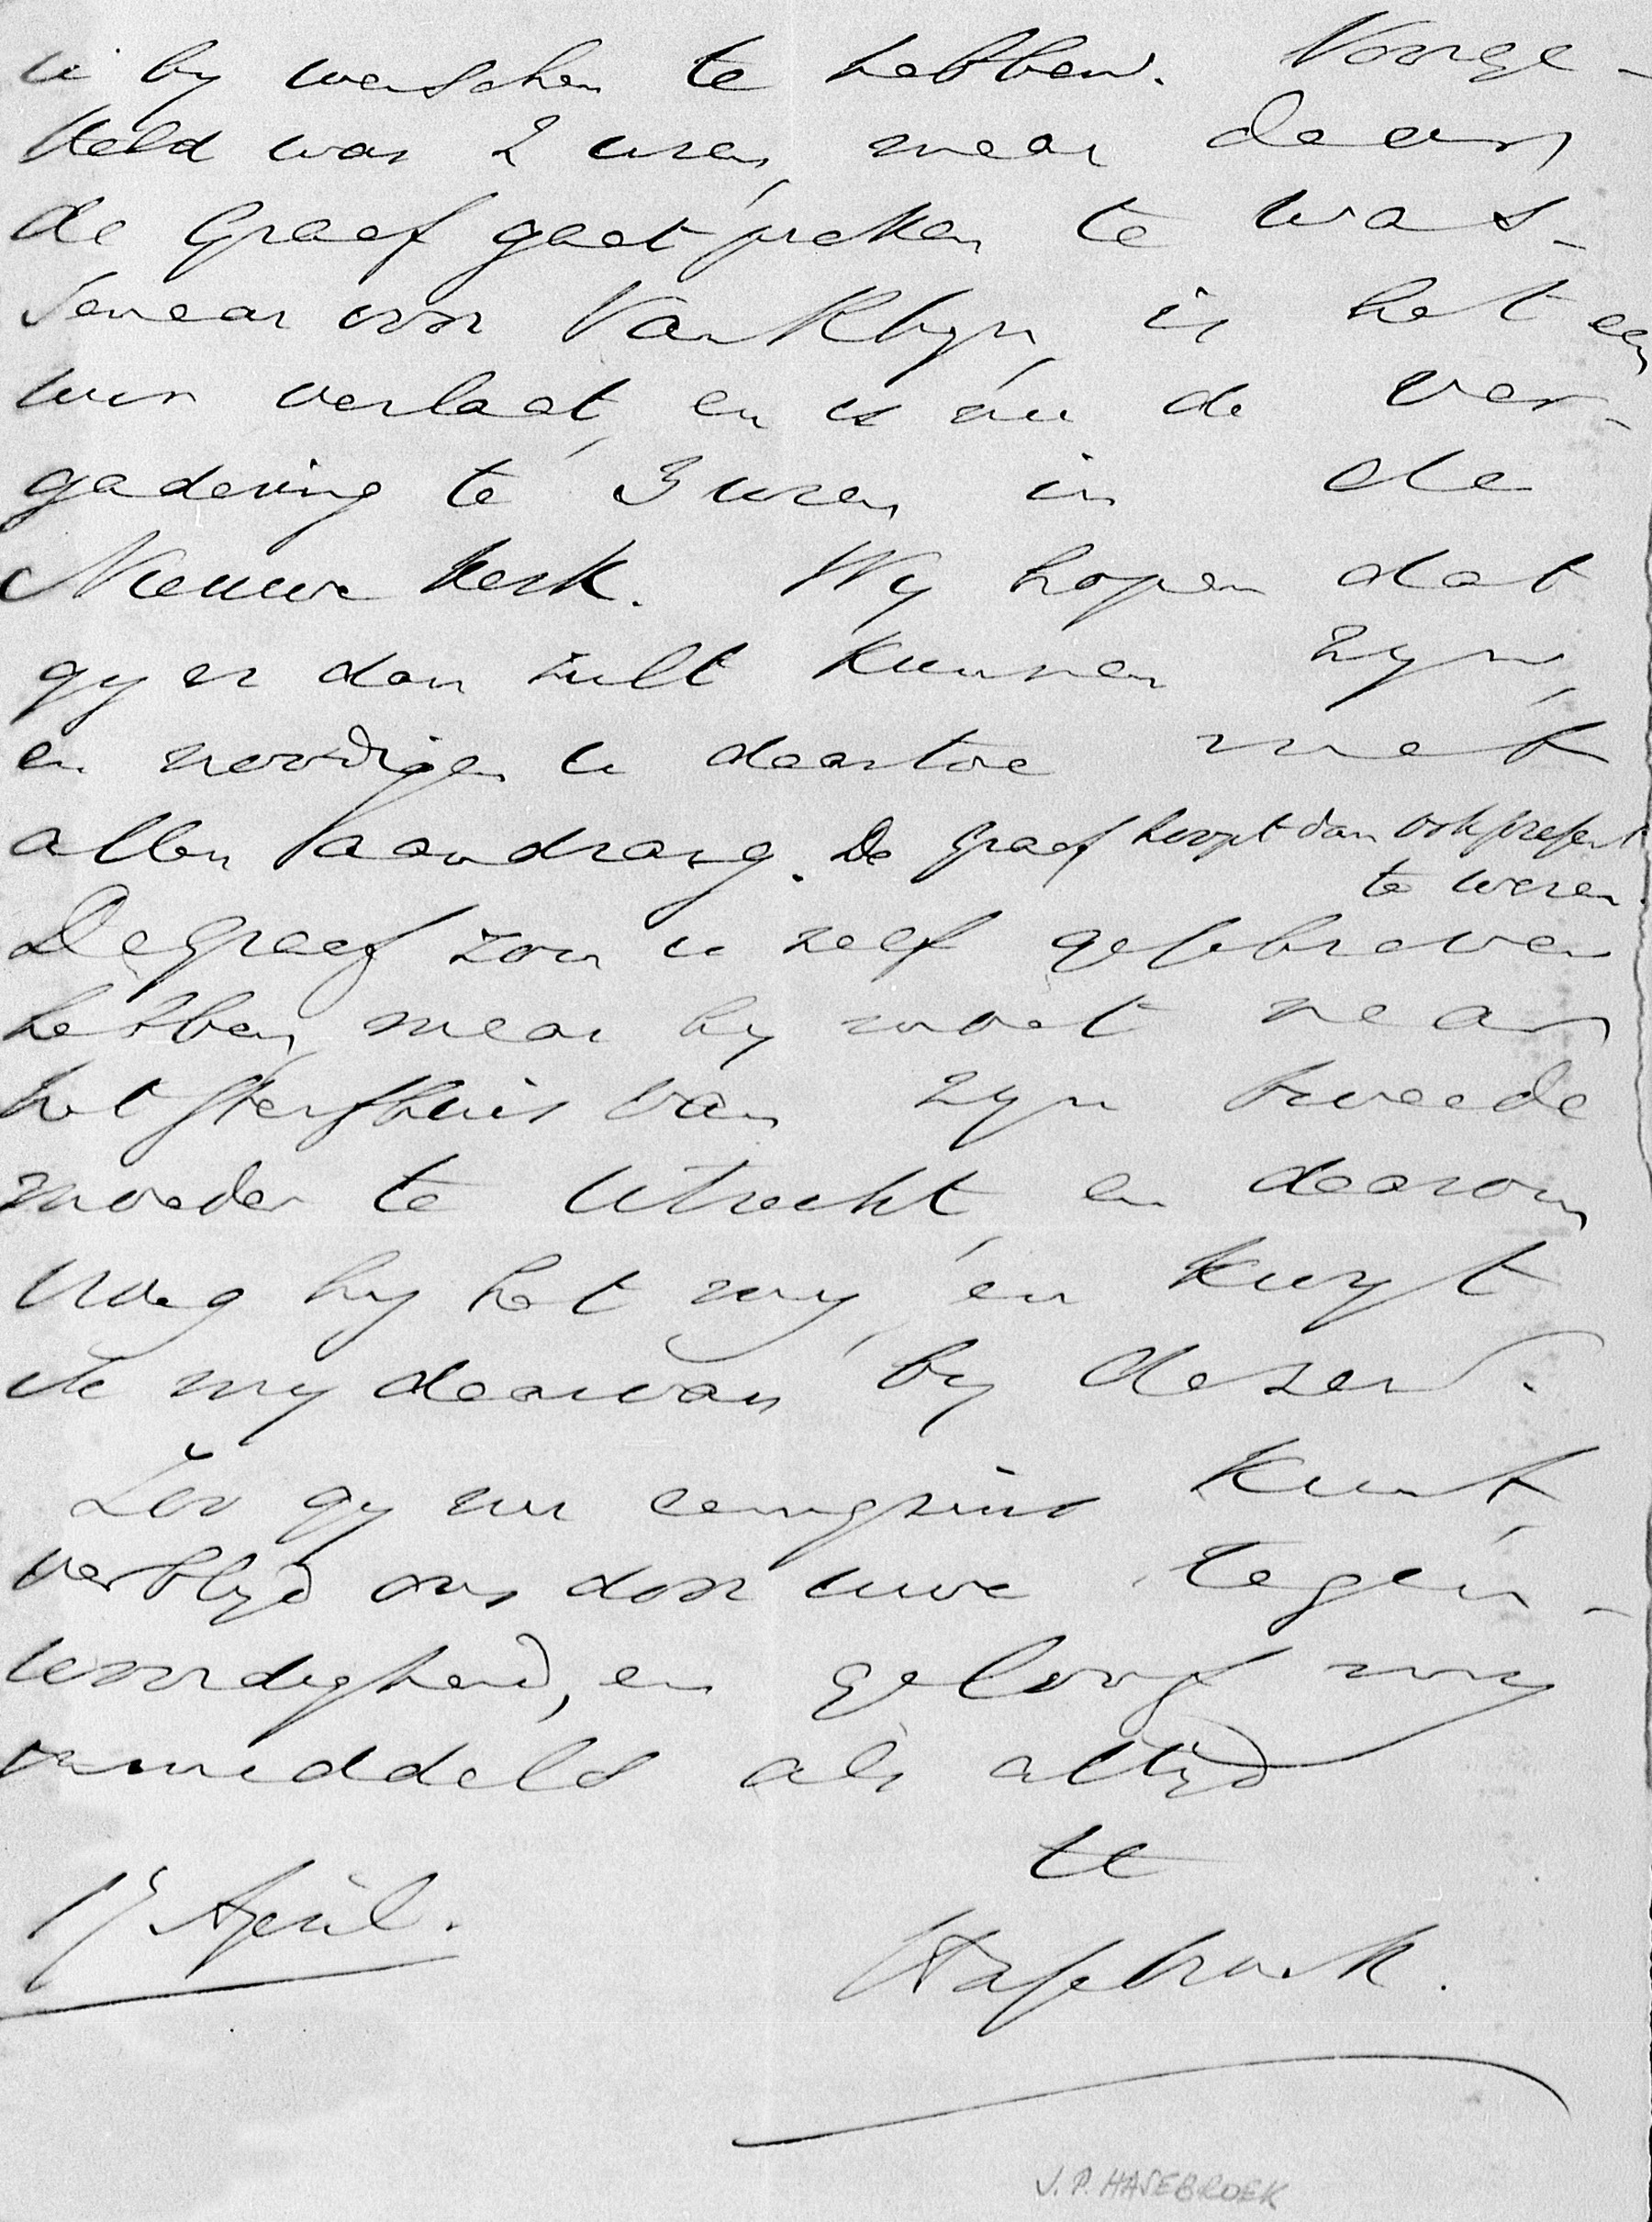 u by wenschen te hebben. Voorge-
steld was 2 uren, maar daar
de Graaf gaat preken te Was-
senaar voor Van Rhijn, is het een
uur verlaat, en is nu de ver-
gadering te 3 uren in de
Nieuwe Kerk. Wy hopen dat
gy er dan zult kunnen zyn,
en noodigen u daartoe met
allen aandrang. De Graaf hoopt dan ook present
te wezen.
De Graaf zou u zelf geschreven
hebben, maar hy moet naar
het sterfhuis van zyn tweede
moeder te Utrecht, en daarom
vroeg hy het my, en kwyt
ik my daarvan by dezen.
Zoo gy nu eenigzins kunt,
verblyd ons door uwe tegen-
woordigheid, en geloof my
onmiddels als altyd
tt
17 April.
Hasebroek.
J. P. HASEBROEK